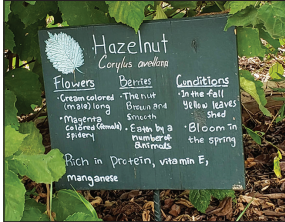 Hazelnut
Corylus avellana
Flowers
• Cream colored
(male) long
• Magenta
colored (female)
spidery
Berries
• The nut
Brown and
smooth
• Eaten by a
number of
animals
Conditions
• In the fall
Yellow leaves
shed
• Bloom in
the spring
Rich in Protein, vitamin E,
manganese